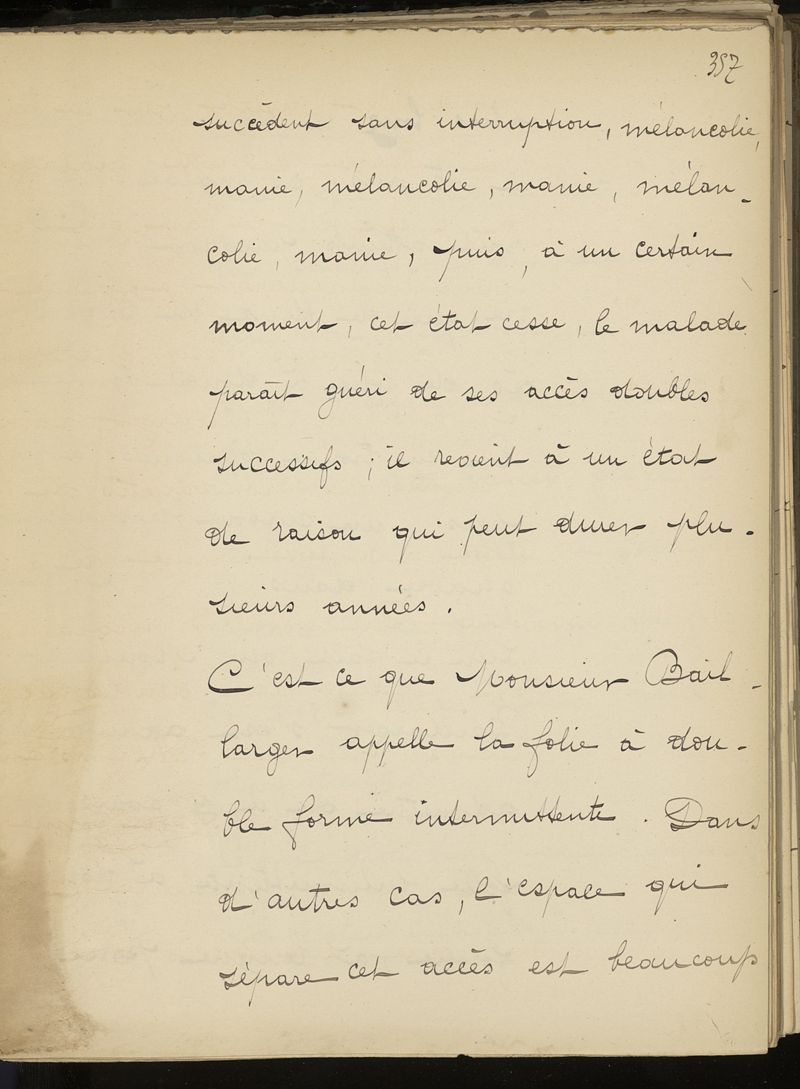 357
succèdent sans interruption, mélancolie,
manie, mélancolie, manie, mélan-
colie, manie, puis, à un certain
moment, cet état cesse, le malade
paraît guéri de ses accès doubles
successifs ; il revient à un état
de raison qui peut durer plu-
sieurs années.
C'est ce que Monsieur Bail-
larger appelle la folie à dou-
ble forme intermittente. Dans
d'autres cas, l'espace qui
sépare cet accès est beaucoup